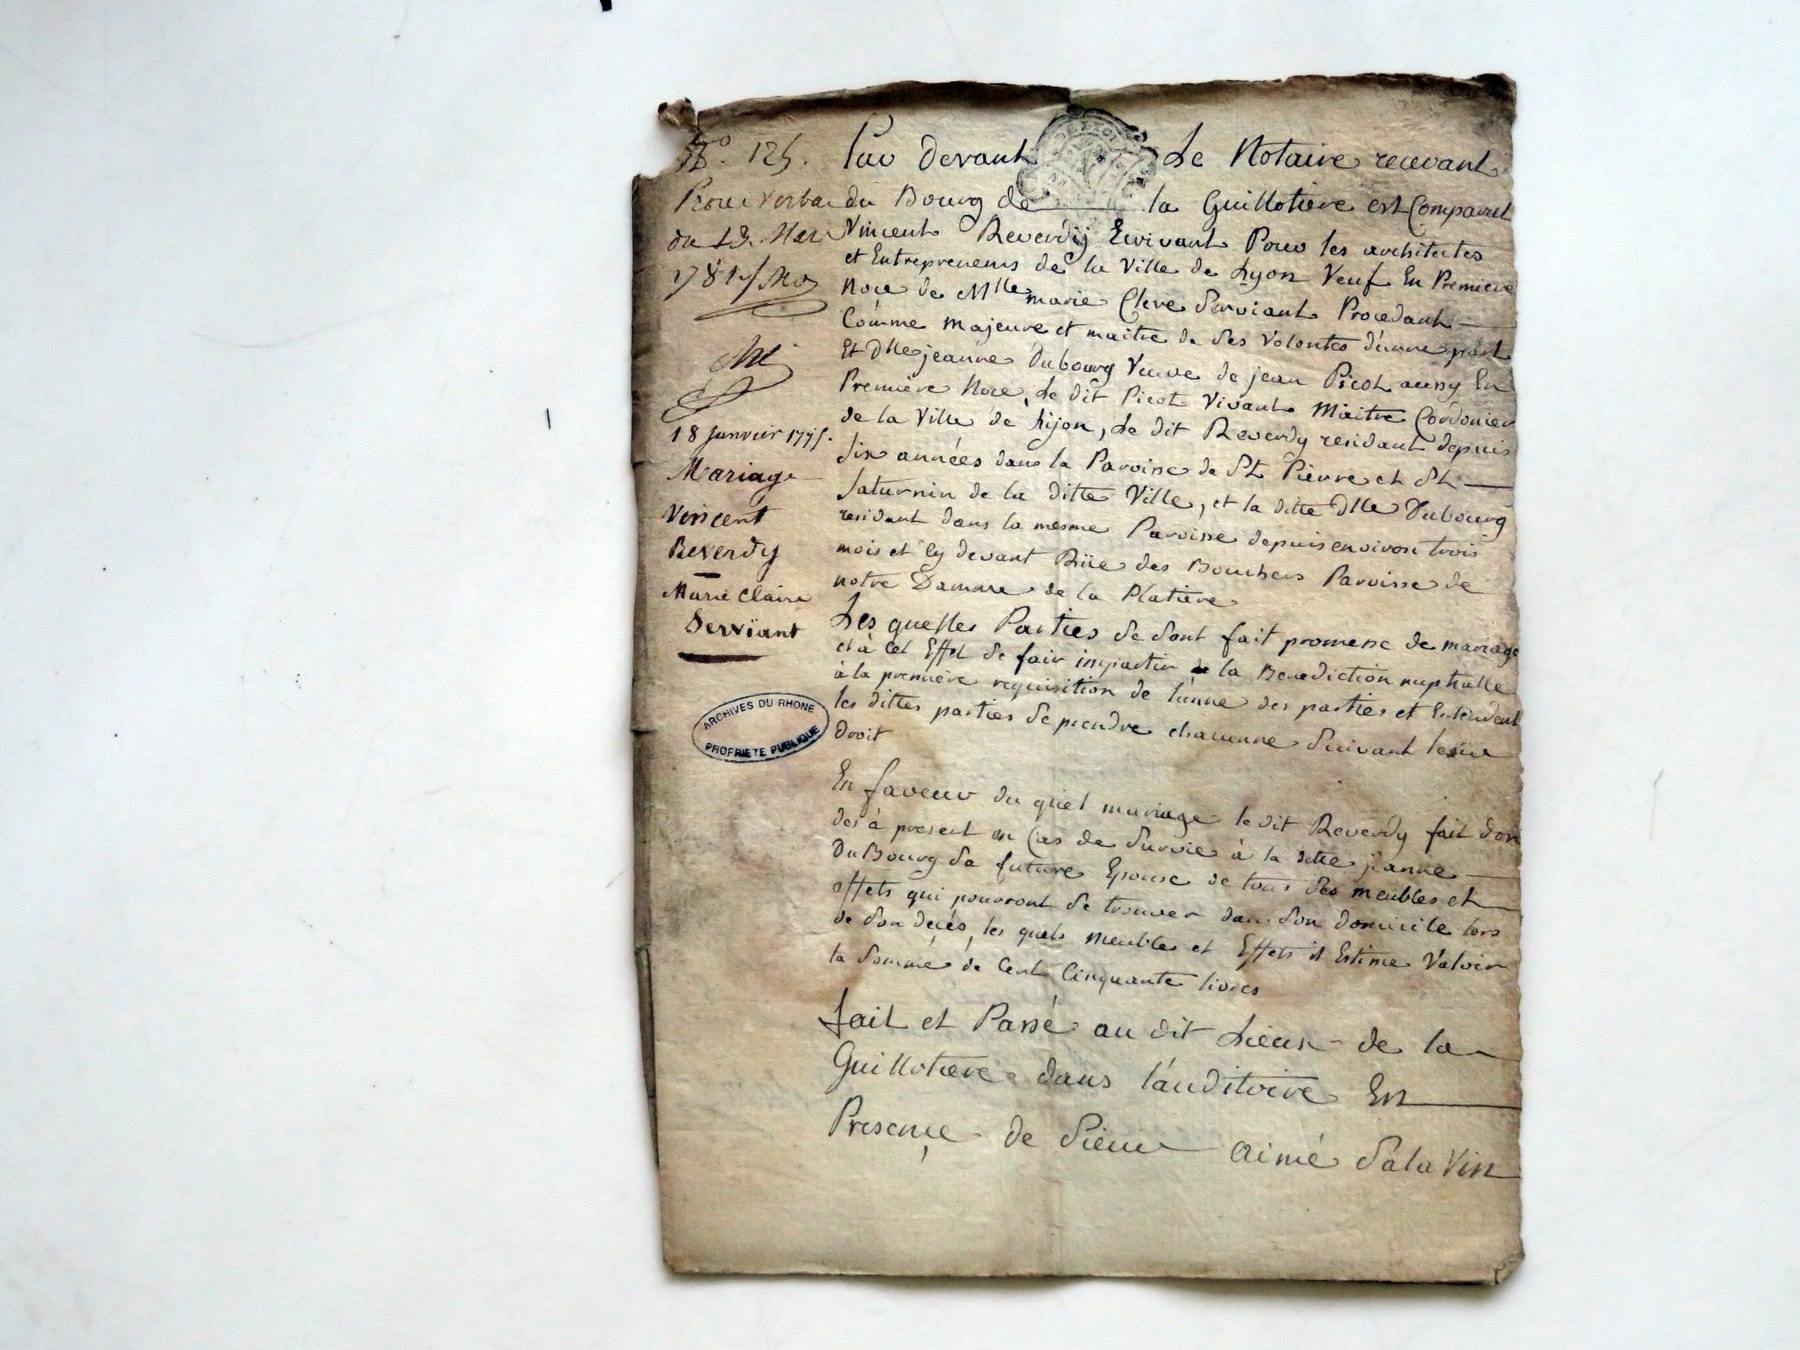 No. 125.
du 13. Mars
1781
18 Janvier 1775.
Mariage
Vincent
Reverdy
Marie Claire
Serviant
ARCHIVES DU RHONE
PROPRIETE PUBLIQUE
Par devant Le Notaire recevant
du Bourg de la Guillotiere est Comparut
Vincent Reverdy Ecrivant Pour les architectes
et Entrepreneurs de la Ville de Lyon Veuf En Premiere
Noce de Mlle marie Clere Serviant Procedant
Comme majeure et maitre de Ses Volontes d'unne part
Et Dlle jeanne Dubourg Veuve de jean Picot aussy En
Premiere Noce, Le dit Picot Vivant Maitre Cordonier
de la Ville de Lyon, Le dit Reverdy residant depuis
dix années dans la Paroisse de St Pierre et St
Saturnin de la ditte Ville, et la ditte Dlle Dubourg
residant dans la mesme Paroisse depuis environ trois
mois et Cy devant Rüe des Bouchers Paroisse de
notre Damme de la Platiere
Les quelles Parties Se Sont fait promesse de mariage
et à Cet Effet Se fair impartir la Benediction nuptialle
à la premiere requisition de l'unne des parties et Entendent
les dittes parties Se prendre chacunne Suivant leur
droit
En faveur du quel mariage le dit Reverdy fait don
des à present en Cas de Survie à la ditte janne
DuBourg Sa future Epouse de tous Ses meubles et
effets qui pourront Se trouver dans Son domicile lors
de Son decés, les quels meubles et Effets il Estime Valoir
la Somme de Cent Cinquante livres
fait et Passé au dit Lieux de la
Guillotiere dans l'auditoire En
Presençe de Sieur Aimé Salavin